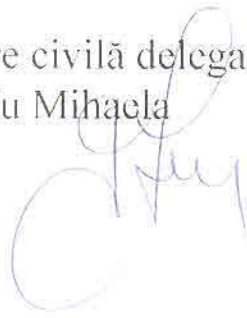 e civilă delega
u Mihaela